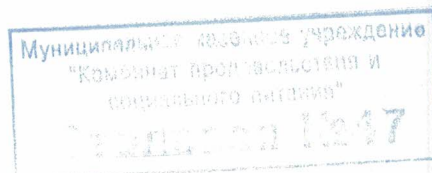 Муниципальное казенное учреждение
"Комбинат продовольствия и
социального питания"
№17